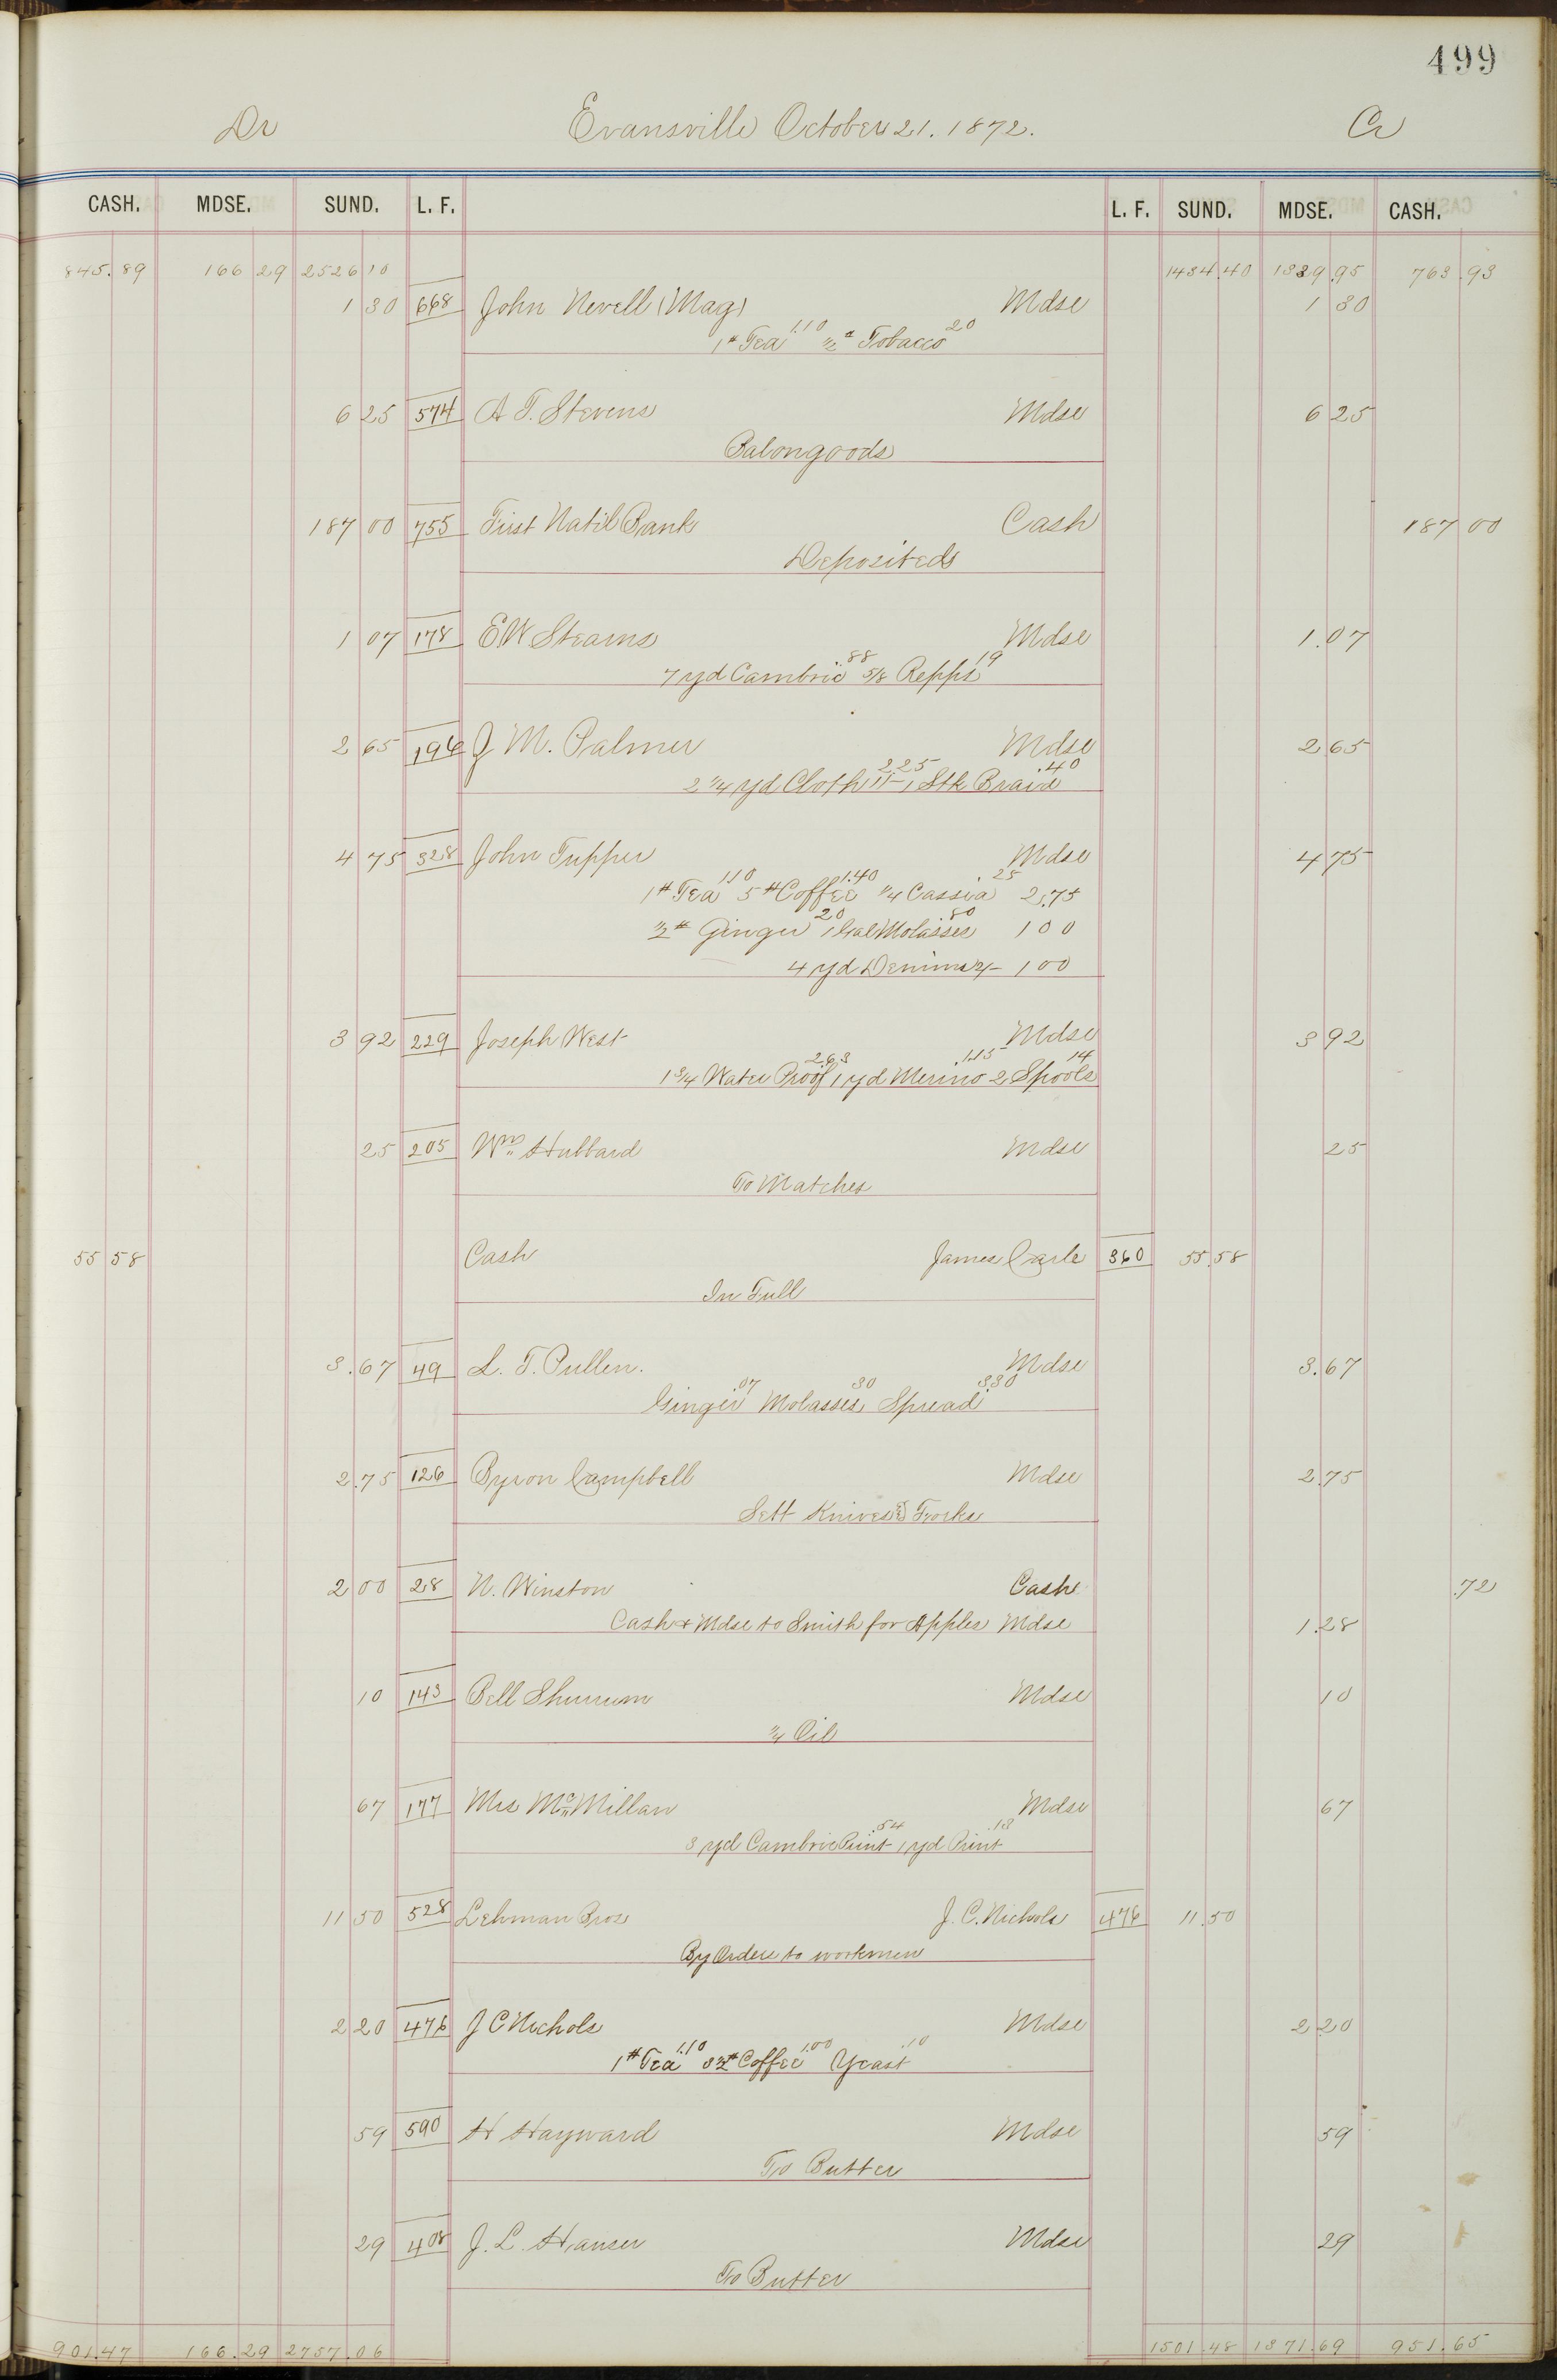 499
Dr Evansville October 21. 1872. Cr
CASH. MDSE. SUND. L. F. L. F. SUND. MDSE. CASH.
845.89 166 29 2526 10 1434.40 1339.95 763.93
1 30 668 John Nevell (Mag) Mdse 1 30
1# Tea 1.10 ½# Tobacco 20
6 25 574 A T. Stevens Mdse 6 25
Balongoods
187 00 755 First Natil Bank Cash 187 00
Deposited
1 07 178 E W Stearns Mdse 1.07
7 yd Cambric .88 5/8 Repps 19
2 65 196 J M. Palmer Mdse 2 65
2 ¼ yd Cloth 2 25 1 Stk Braid .40
4 75 328 John Tupper Mdse 4 75
1# Tea 1.10 5# Coffee 1.40 ¼ Cassia 25 2.75
½# Ginger 20 1 Gal Molasses 80 1 00
4 yd Denim 2/- 1 00
3 92 229 Joseph West Mdse 3 92
1 ¾ Water Proof 2.63 1 yd Merino 1.15 2 Spools 14
25 205 Wm Hubbard Mdse 25
To Matches
55 58 Cash James Carle 360 55.58
In Full
3.67 49 L. T. Pullen. Mdse 3.67
Ginger .07 Molasses 30 Spread 3.30
2.75 126 Byron Campbell Mdse 2.75
Sett Knives & Forks
2 00 28 N. Winston Cash .72
Cash & Mdse to Smith for Apples Mdse 1.28
10 143 Bell Mdse 10
¼ Oil
67 177 Mrs McMillan Mdse 67
3 yd Cambric Print .54 1 yd Print .13
11 50 528 Lehman Bros J. C. Nichols 476 11.50
By Orders to workmen
2 20 476 J C Nichols Mdse 2 20
1# Tea 1.10 3½# Coffee 1.00 Yeast .10
59 590 H Hayward Mdse 59
To Butter
29 408 J. L. Hanser Mdse 29
To Butter
901.47 166.29 2757.06 1501.48 1371.69 951.65